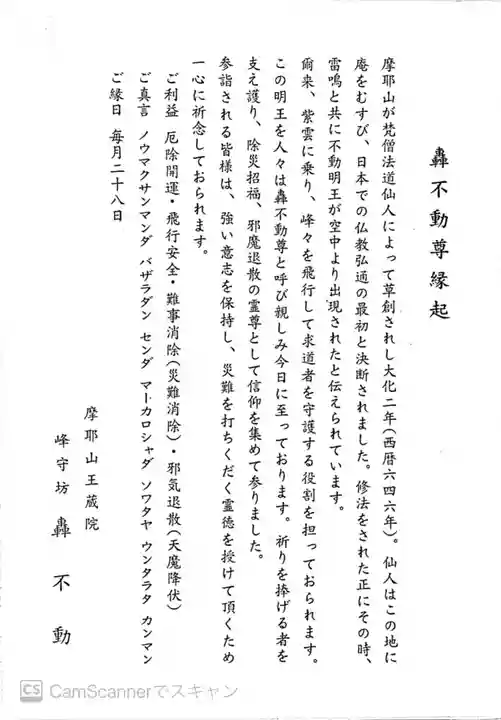 轟不動尊縁起
摩耶山が梵僧法道仙人によって草創されし大化二年(西暦六四六年)。仙人はこの地に
庵をむすび、日本での仏教弘通の最初と決断されました。修法をされた正にその時、
雷鳴と共に不動明王が空中より出現されたと伝えられています。
爾来、紫雲に乗り、峰々を飛行して求道者を守護する役割を担っておられます。
この明王を人々は轟不動尊と呼び親しみ今日に至っております。祈りを捧げる者を
支え護り、除災招福、邪魔退散の霊尊として信仰を集めて参りました。
参詣される皆様は、強い意志を保持し、災難を打ちくだく霊徳を授けて頂くため
一心に祈念しておられます。
ご利益 厄除開運・飛行安全・難事消除(災難消除)・邪気退散(天魔降伏)
ご真言 ノウマクサンマンダ バザラダン センダ マーカロシャダ ソワタヤ ウンタラタ カンマン
ご縁日 毎月二十八日
摩耶山王蔵院
峰守坊 轟不動
CS CamScannerでスキャン